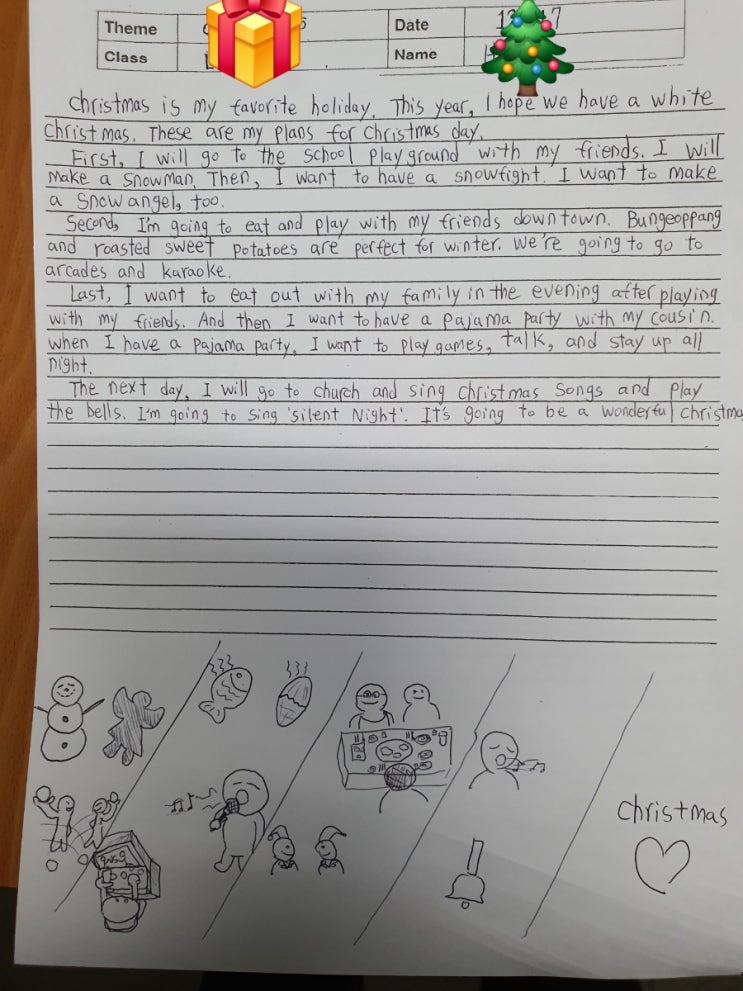 Theme
Date
Class
Name
Christmas is my favorite holiday. This year, I hope we have a white
Christmas. These are my plans for Christmas day.
First, I will go to the school playground with my friends. I will
make a snowman. Then, I want to have a snowfight. I want to make
a snow angel, too.
Second, I'm going to eat and play with my friends downtown. Bungeoppang
and roasted sweet potatoes are perfect for winter. We're going to go to
arcades and karaoke.
Last, I want to eat out with my family in the evening after playing
with my friends. And then I want to have a pajama party with my cousin.
when I have a pajama party, I want to play games, talk, and stay up all
night.
The next day, I will go to church and sing Christmas songs and play
the bells. I'm going to sing 'silent Night'. It's going to be a wonderful christma
christmas